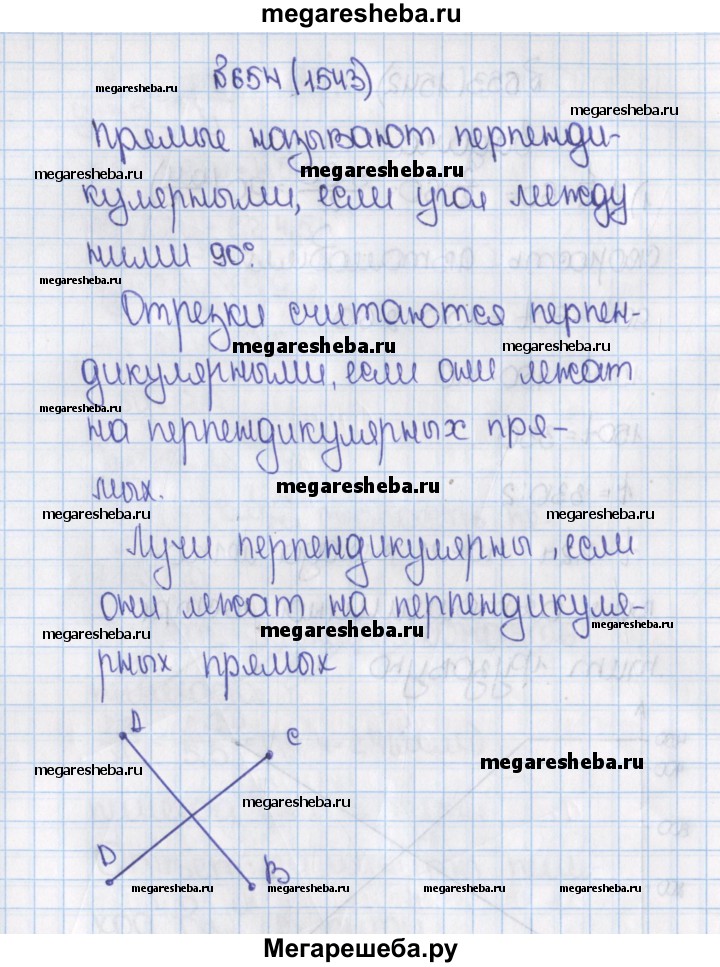 megaresheba.ru
В654 (1543)
megaresheba.ru
megaresheba.ru
Прямые называют перпенди-
megaresheba.ru
megaresheba.ru
кулярными, если угол между
ними 90°.
megaresheba.ru
Отрезки считаются перпен-
megaresheba.ru
megaresheba.ru
дикулярными, если они лежат
megaresheba.ru
на перпендикулярных пря-
мых.
megaresheba.ru
megaresheba.ru
megaresheba.ru
Лучи перпендикулярны, если
они лежат на перпендикуля-
megaresheba.ru
megaresheba.ru
megaresheba.ru
рных прямых
A
C
megaresheba.ru
megaresheba.ru
megaresheba.ru
D
B
megaresheba.ru
megaresheba.ru
megaresheba.ru
megaresheba.ru
Мегарешеба.ру